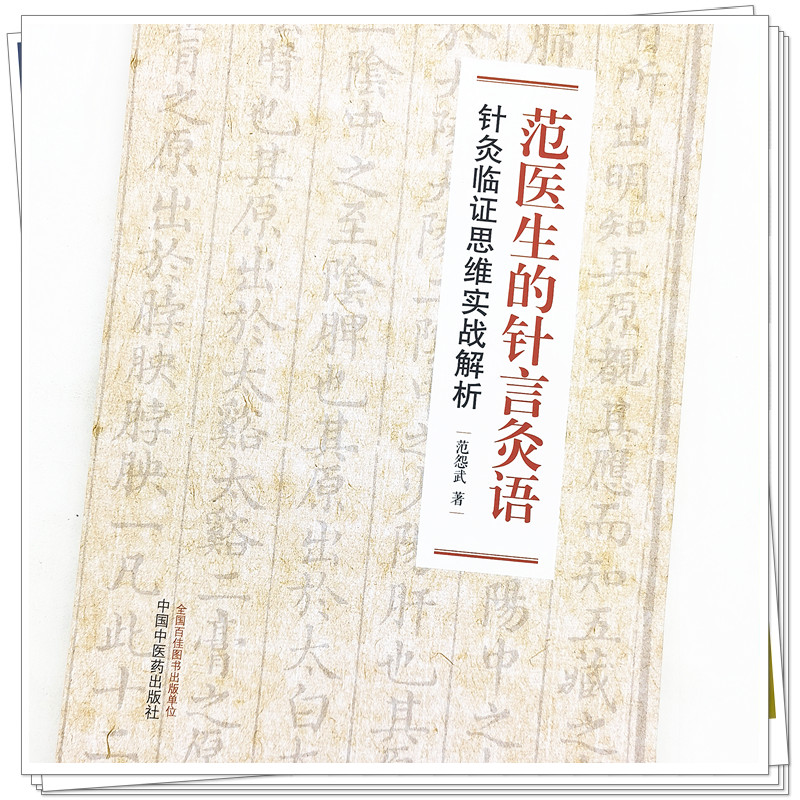 范医生的针言灸语
针灸临证思维实战解析
范怨武 著
全国百佳图书出版单位
中国中医药出版社
有所出明知其原覩其應而知五藏之
肺
陽中之
於大陵大陵二陽中之少陽肝也其
一陰中之至陰脾也其原出於太白太
腎也其原出於太谿太谿二膏之原
肓之原出於脖胦脖胦一凡此十二